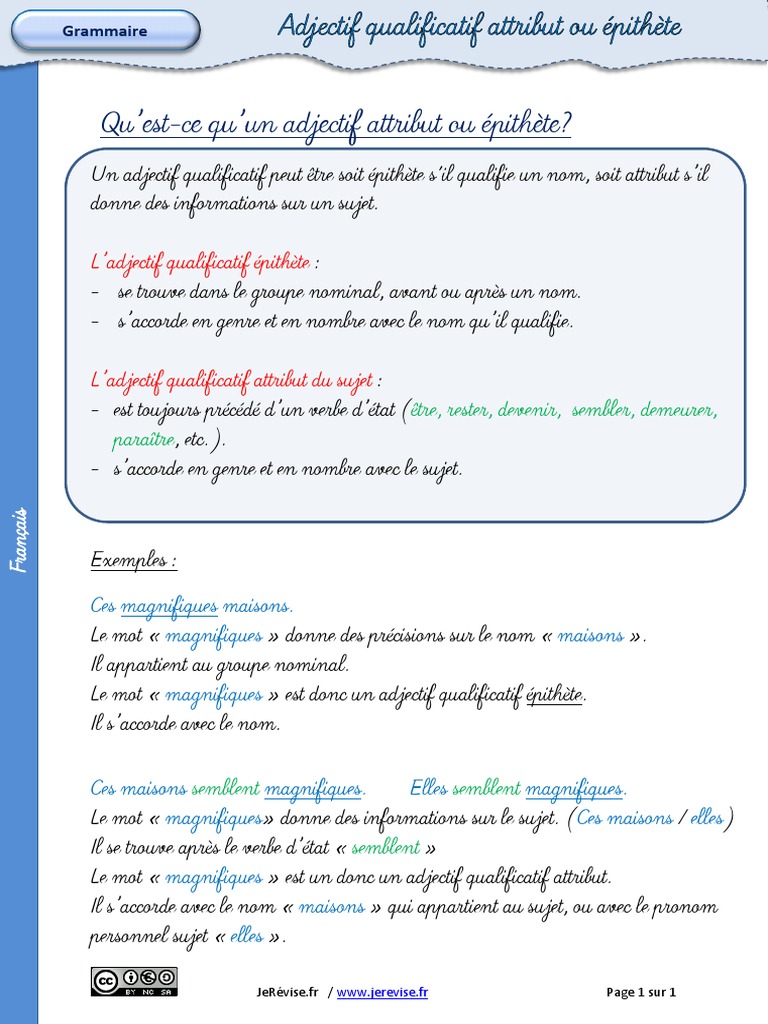 Grammaire
Adjectif qualificatif attribut ou épithète
Qu'est-ce qu'un adjectif attribut ou épithète?
Un adjectif qualificatif peut être soit épithète s'il qualifie un nom, soit attribut s'il
donne des informations sur un sujet.
L'adjectif qualificatif épithète :
- se trouve dans le groupe nominal, avant ou après un nom.
- s'accorde en genre et en nombre avec le nom qu'il qualifie.
L'adjectif qualificatif attribut du sujet :
- est toujours précédé d'un verbe d'état (être, rester, devenir, sembler, demeurer,
paraître, etc.).
- s'accorde en genre et en nombre avec le sujet.
Français
Exemples :
Ces magnifiques maisons.
Le mot « magnifiques » donne des précisions sur le nom « maisons ».
Il appartient au groupe nominal.
Le mot « magnifiques » est donc un adjectif qualificatif épithète.
Il s'accorde avec le nom.
Ces maisons semblent magnifiques. Elles semblent magnifiques.
Le mot « magnifiques» donne des informations sur le sujet. (Ces maisons / elles)
Il se trouve après le verbe d'état « semblent »
Le mot « magnifiques » est un donc un adjectif qualificatif attribut.
Il s'accorde avec le nom « maisons » qui appartient au sujet, ou avec le pronom
personnel sujet « elles ».
cc BY NC SA
JeRévise.fr / www.jerevise.fr
Page 1 sur 1